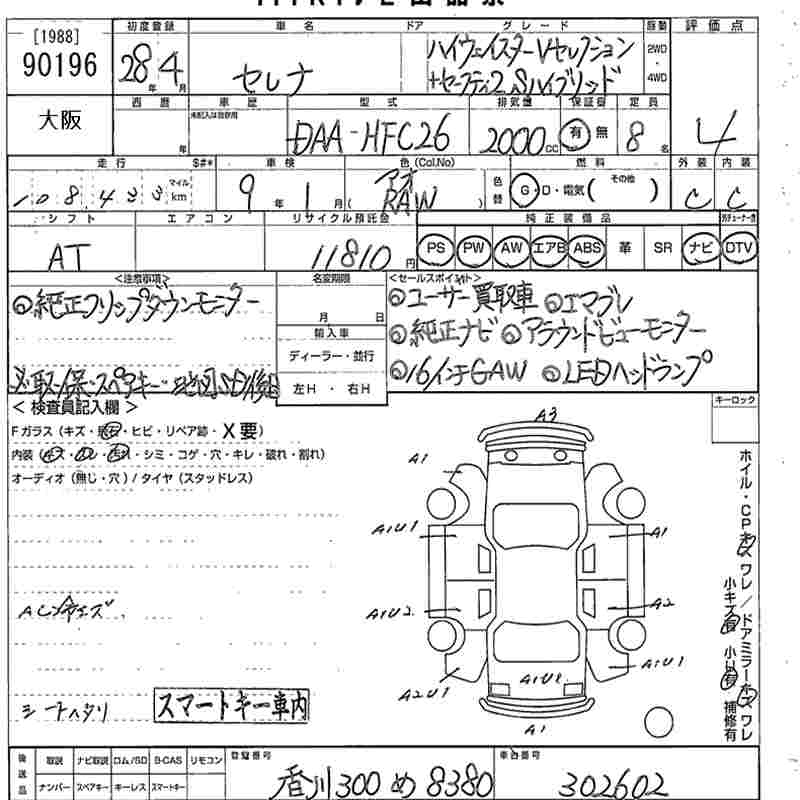 [1988]
90196
大阪
初度登録 車名 ドア グレード 駆動 評価点
28年4月 セレナ ハイウェイスターVセレクション 2WD
+セーフティ2 Sハイブリッド 4WD
西暦 車歴 型式 排気量 保証書 定員
年 未記入は自家用 DAA-HFC26 2000cc 有 無 8名 4
走行 $#* 車検 色(Col.No) 燃料 外装 内装
108,423 マイル km 9年1月 ( アオ RAW ) 色替 G・D・電気( その他 ) C C
シフト エアコン リサイクル預託金 純正装備品
AT 11810円 PS PW AW エアB ABS 革 SR ナビ DTV
<注意事項> 名変期限 <セールスポイント>
◎純正フリップダウンモニター 月 日 ◎ユーザー買取車 ◎エマブレ
輸入車 ◎純正ナビ ◎アラウンドビューモニター
ディーラー・並行
取・保・スペアキー・地図SD後日 左H・右H ◎16インチGAW ◎LEDヘッドランプ
<検査員記入欄> キーロック
Fガラス(キズ・飛石・ヒビ・リペア跡・X要)
内装(キズ・ヨゴレ・汚れ・シミ・コゲ・穴・キレ・破れ・割れ)
オーディオ(無し・穴)/タイヤ(スタッドレス)
A3
A1
A1U1 A1
A1U2 A2
A1U1
A2U1 A1U2
A1
ホイル・CPキズ ワレ/ドアミラーキズ ワレ
補修有
シートヘタリ スマートキー車内
後送品 取説 ナビ取説 ロム/SD B-CAS リモコン 登録番号 車台番号
ナンバー スペアキー キーレス スマートキー 香川300め8380 302602